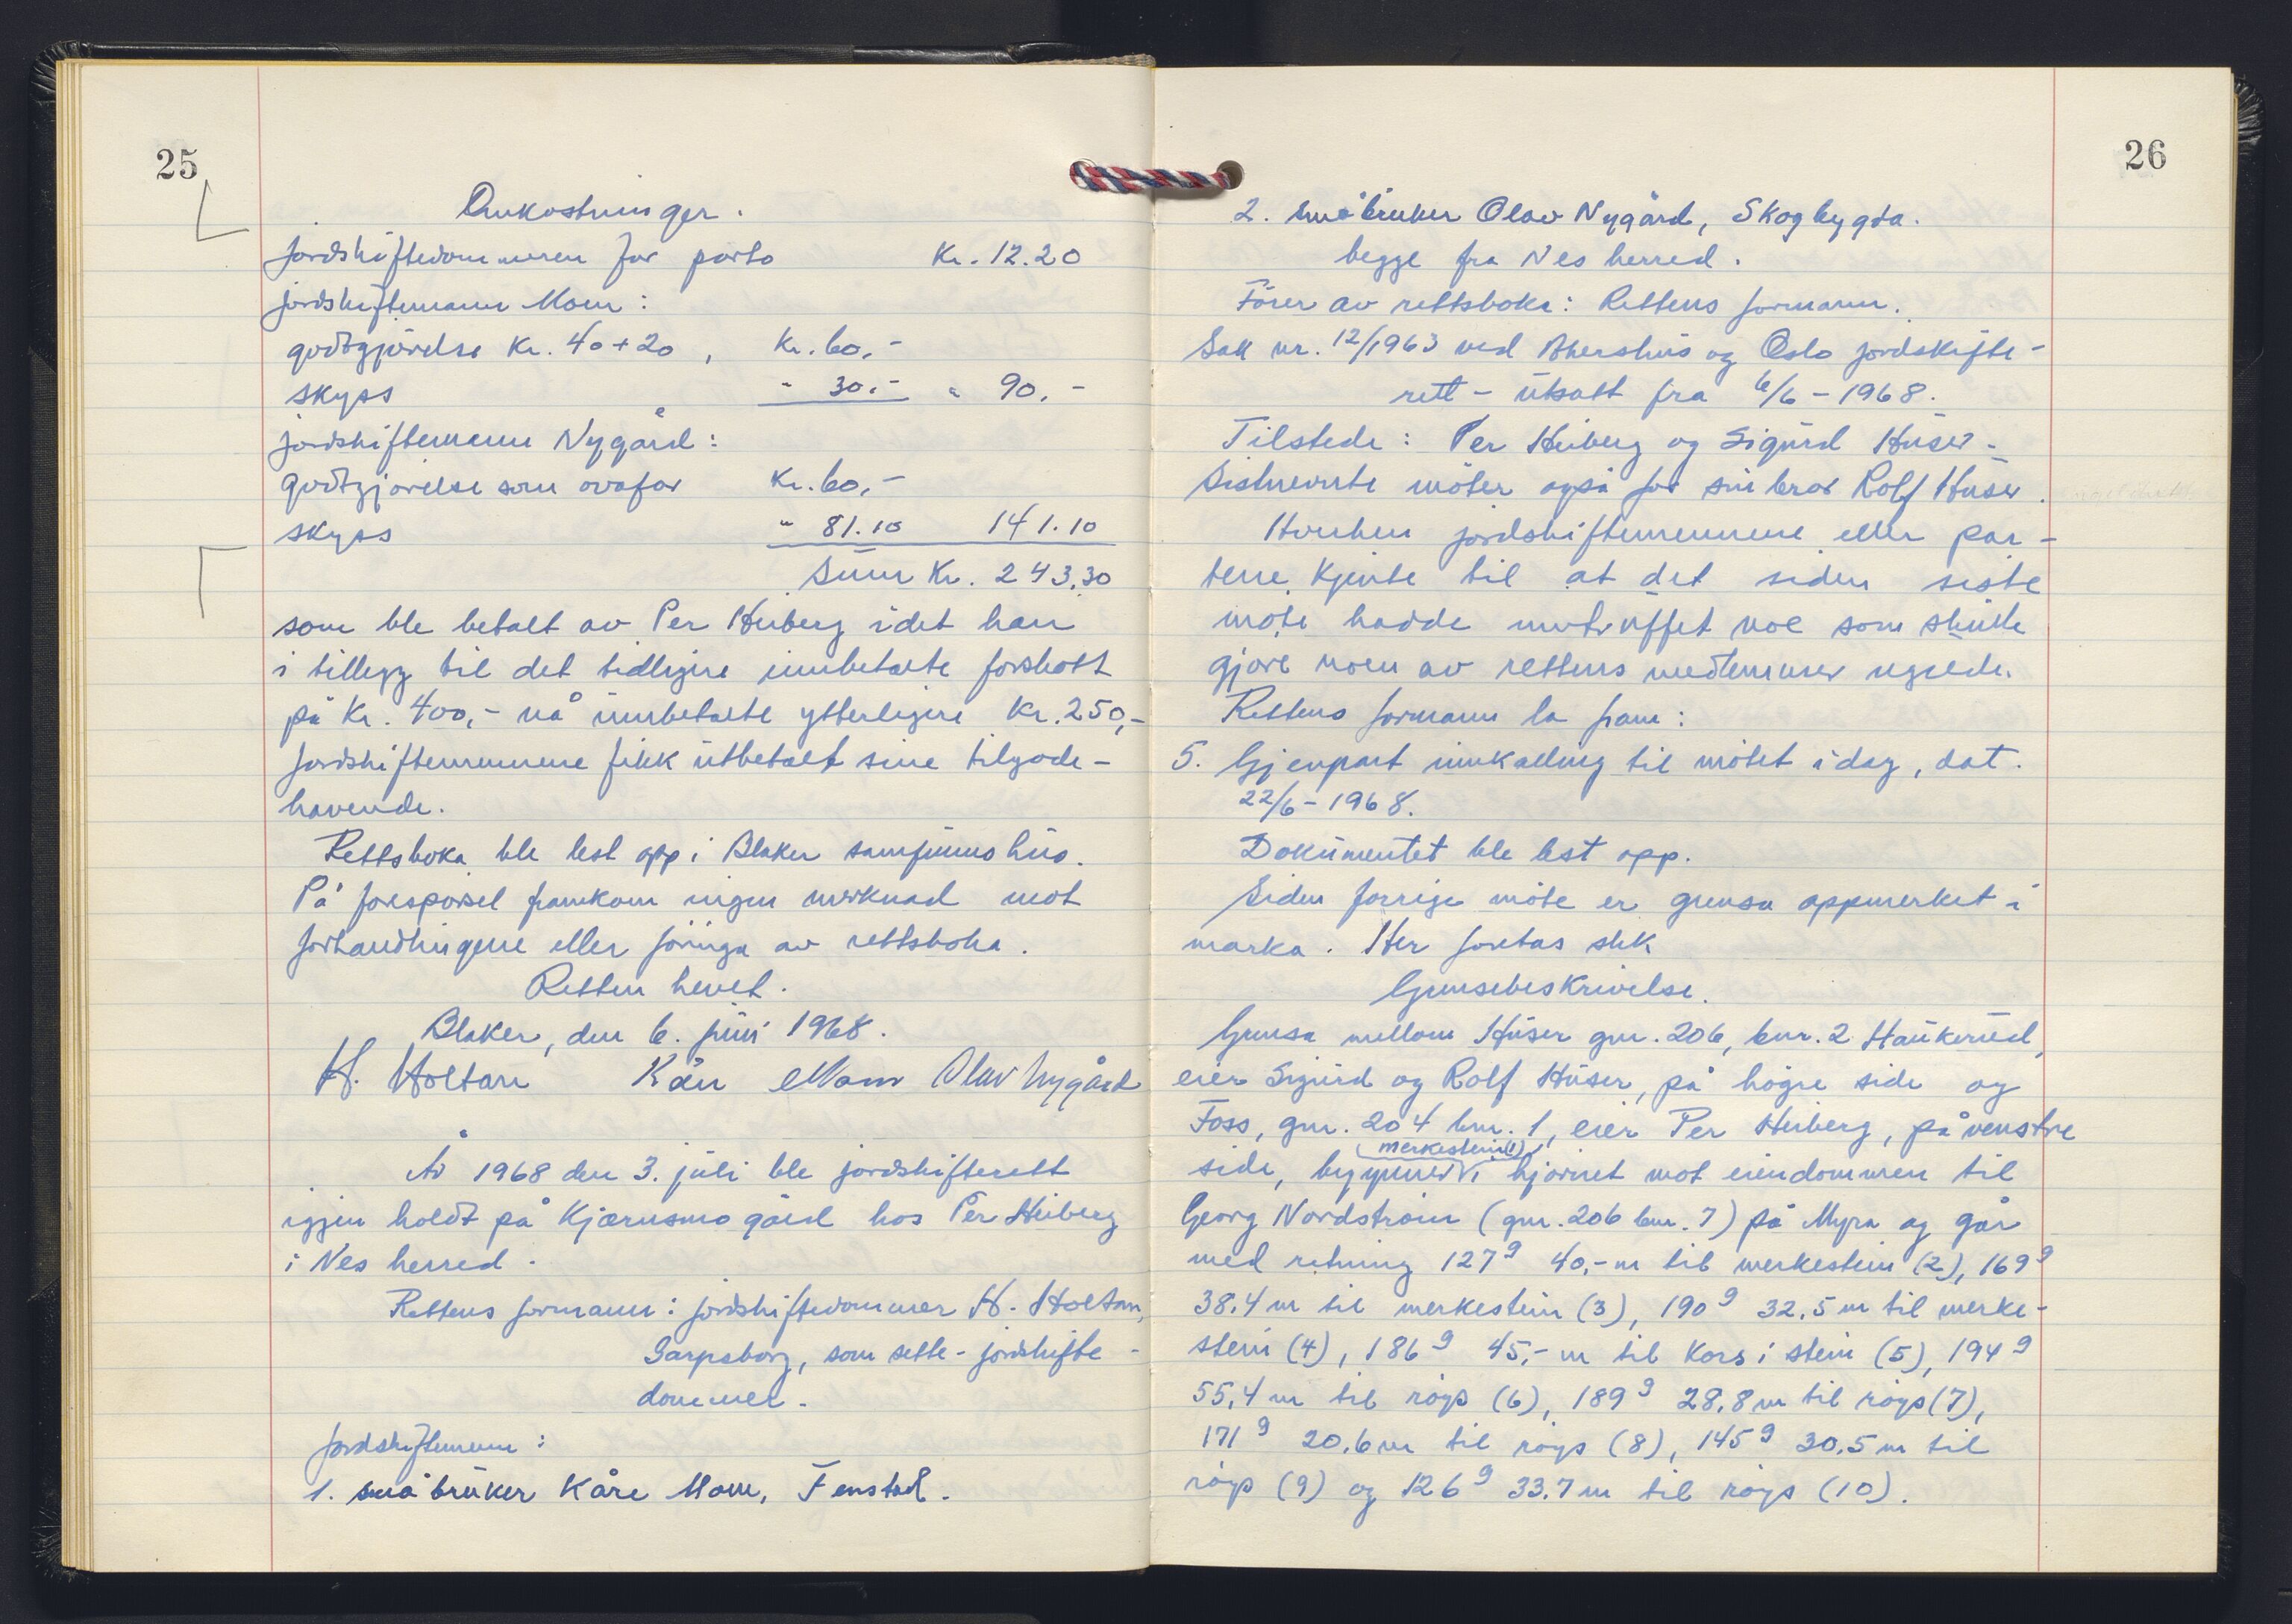 25
Omkostninger.
Jordskiftedommeren for porto Kr. 12.20
jordskiftemann Moen:
godtgjørelse Kr. 40+20, Kr. 60,-
skyss " 30,- " 90,-
jordskiftemann Nygård:
godtgjørelse som ovafor Kr. 60,-
skyss " 81.10 141.10
Sum Kr. 243,30
som ble betalt av Per Heiberg idet han
i tillegg til det tidligere innbetalte forskott
på Kr. 400,- nå innbetalte ytterligere Kr. 250,-
Jordskiftemennene fikk utbetalt sine tilgode-
havende.
Rettsboka ble lest opp i Blaker samfunnshus.
På forespørsel framkom ingen merknad mot
forhandlingene eller føringa av rettsboka.
Retten hevet.
Blaker, den 6. juni 1968.
H. Holtan Kåre Moen Olav Nygård
År 1968 den 3. juli ble jordskifterett
igjen holdt på Kjærnsmo gård hos Per Heiberg
i Nes herred.
Rettens formann: jordskiftedommer H. Holtan,
Sarpsborg, som sette-jordskifte-
dommer.
Jordskiftemenn:
1. småbruker Kåre Moen, Fenstad.
26
2. småbruker Olav Nygård, Skogbygda.
begge fra Nes herred.
Fører av rettsboka: Rettens formann.
Sak nr. 12/1963 ved Akershus og Oslo jordskifte-
rett - utsatt fra 6/6-1968.
Tilstede: Per Heiberg og Sigurd Huser.
Sistnevnte møter også for sin bror Rolf Huser.
Hverken jordskiftemennene eller par-
tene kjente til at det siden siste
møte hadde inntruffet noe som skulle
gjøre noen av rettens medlemmer ugilde.
Rettens formann la fram:
5. Gjenpart innkalling til møtet i dag, dat.
22/6-1968.
Dokumentet ble lest opp.
Siden forrige møte er grensa oppmerket i
marka. Her foretas slik
Grensebeskrivelse.
Grensa mellom Huser gnr. 206, bnr. 2 Haukerud,
eier Sigurd og Rolf Huser, på høgre side og
Foss, gnr. 204 bnr. 1, eier Per Heiberg, på venstre
merkestein (1)
side, begynner i hjørnet mot eiendommen til
Georg Nordstrøm (gnr. 206 bnr. 7) på Myra og går
med retning 127g 40,-m til merkestein (2), 169g
38.4 m til merkestein (3), 190g 32,5 m til merke-
stein (4), 186g 45,- m til kors i stein (5), 194g
55,4 m til røys (6), 189g 28,8 m til røys (7),
171g 20.6 m til røys (8), 145g 30.5 m til
røys (9) og 126g 33.7 m til røys (10).